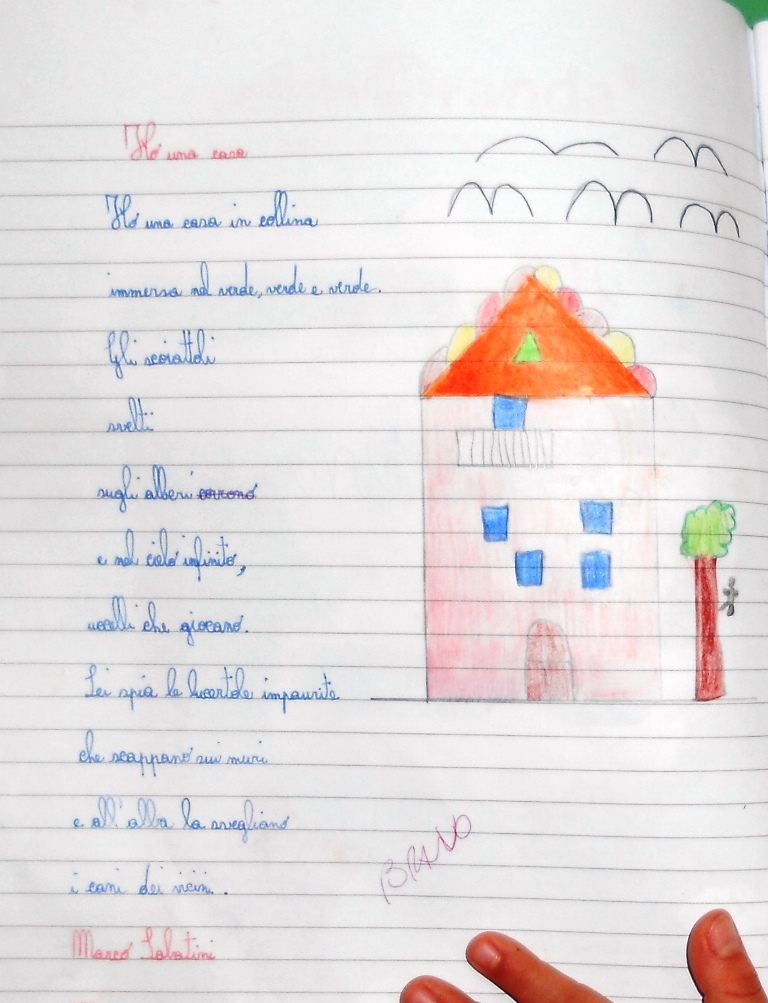 Ho una casa
Ho una casa in collina
immersa nel verde, verde e verde.
Gli scoiattoli
svelti
sugli alberi corrono
e nel cielo infinito,
uccelli che giocano.
Lei spia le lucertole impaurite
che scappano sui muri
e all'alba la svegliano
i cani dei vicini.
BRAVO
Marco Sabatini